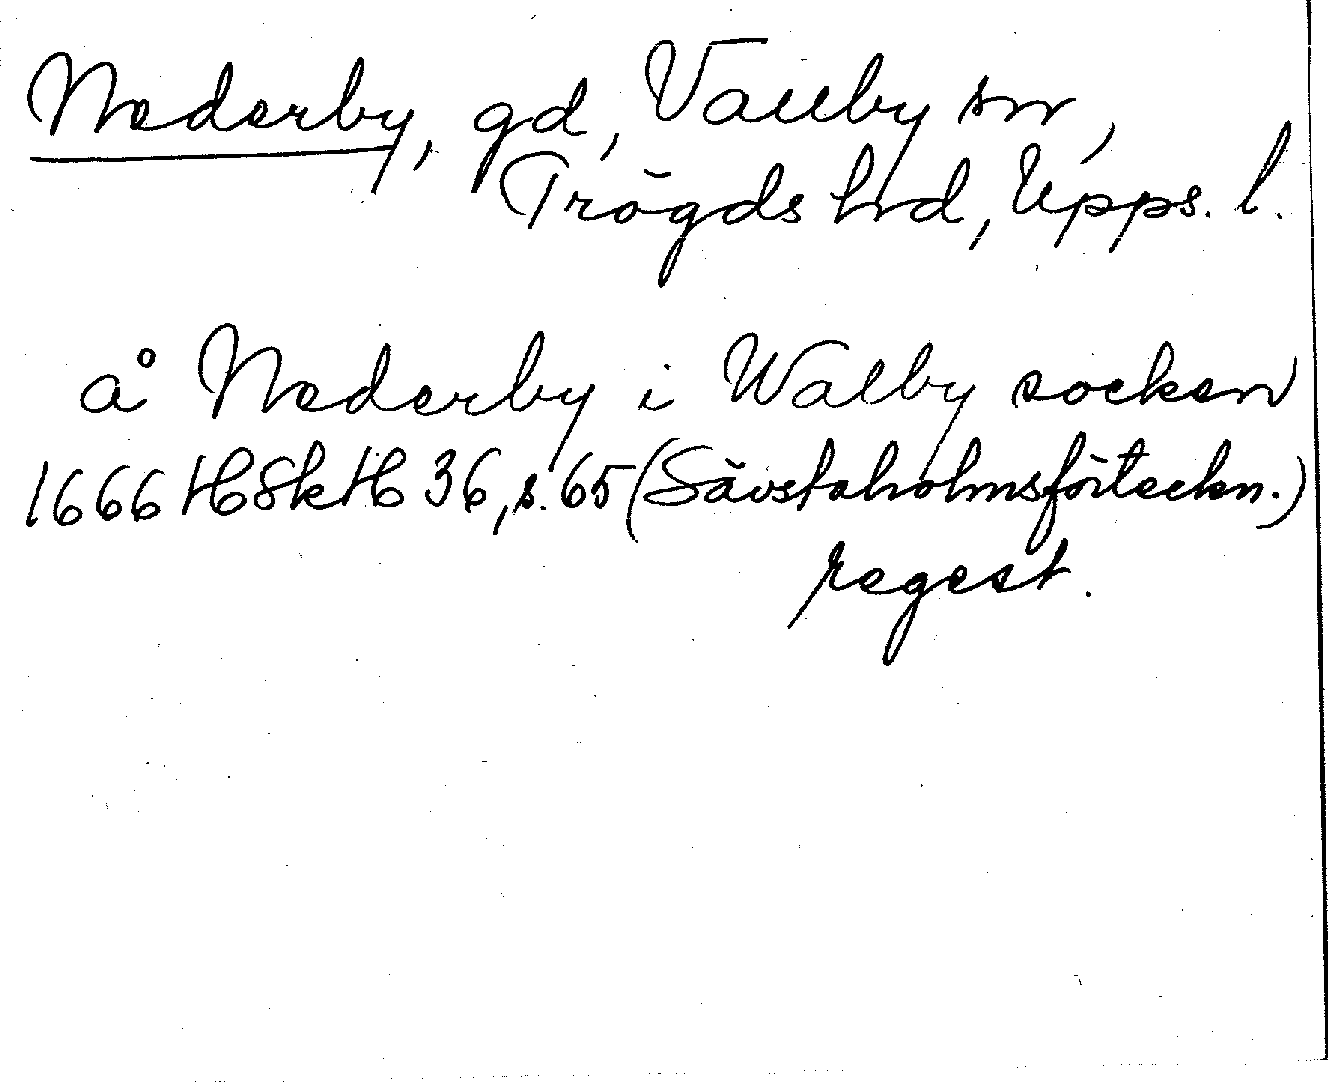 Nederby, gd, Vallby sn,
Trögds hd, Upps. l.
å Nederby i Walby socken
1666 HSkH 36, s. 65 (Sävstaholmsförteckn.)
regest.